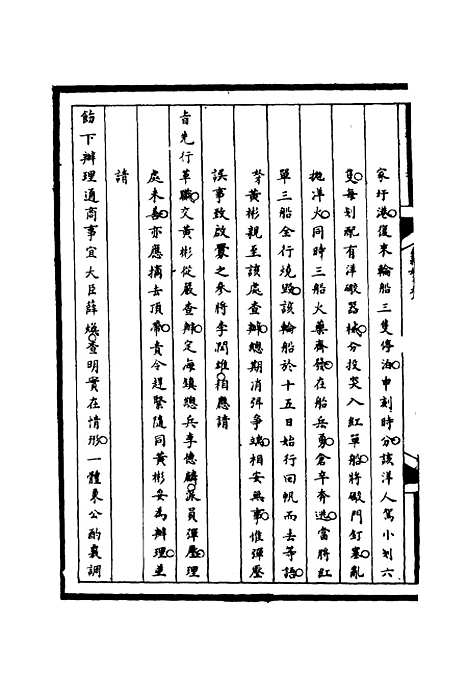 家圩港復來輪船三隻停泊申刻時分該洋人駕小划六
隻每划配有洋礮器械分投突入紅單船將礮門釘塞亂
拋洋火同時三船火藥齊發在船兵勇倉卒奔逃當將紅
單三船全行燒毀該輪船於十五日始行回帆而去等語
黃彬親至該處查辦總期消弭爭端相安無事惟彈壓
誤事致啟釁之參將李閏雄相應請
旨先行革職交黃彬從嚴查辦定海鎮總兵李德麟派員彈壓理
處未善亦應摘去頂帶責令趕緊隨同黃彬妥為辦理並
請
飭下辦理通商事宜大臣薛煥查明實在情形一體秉公酌裏調